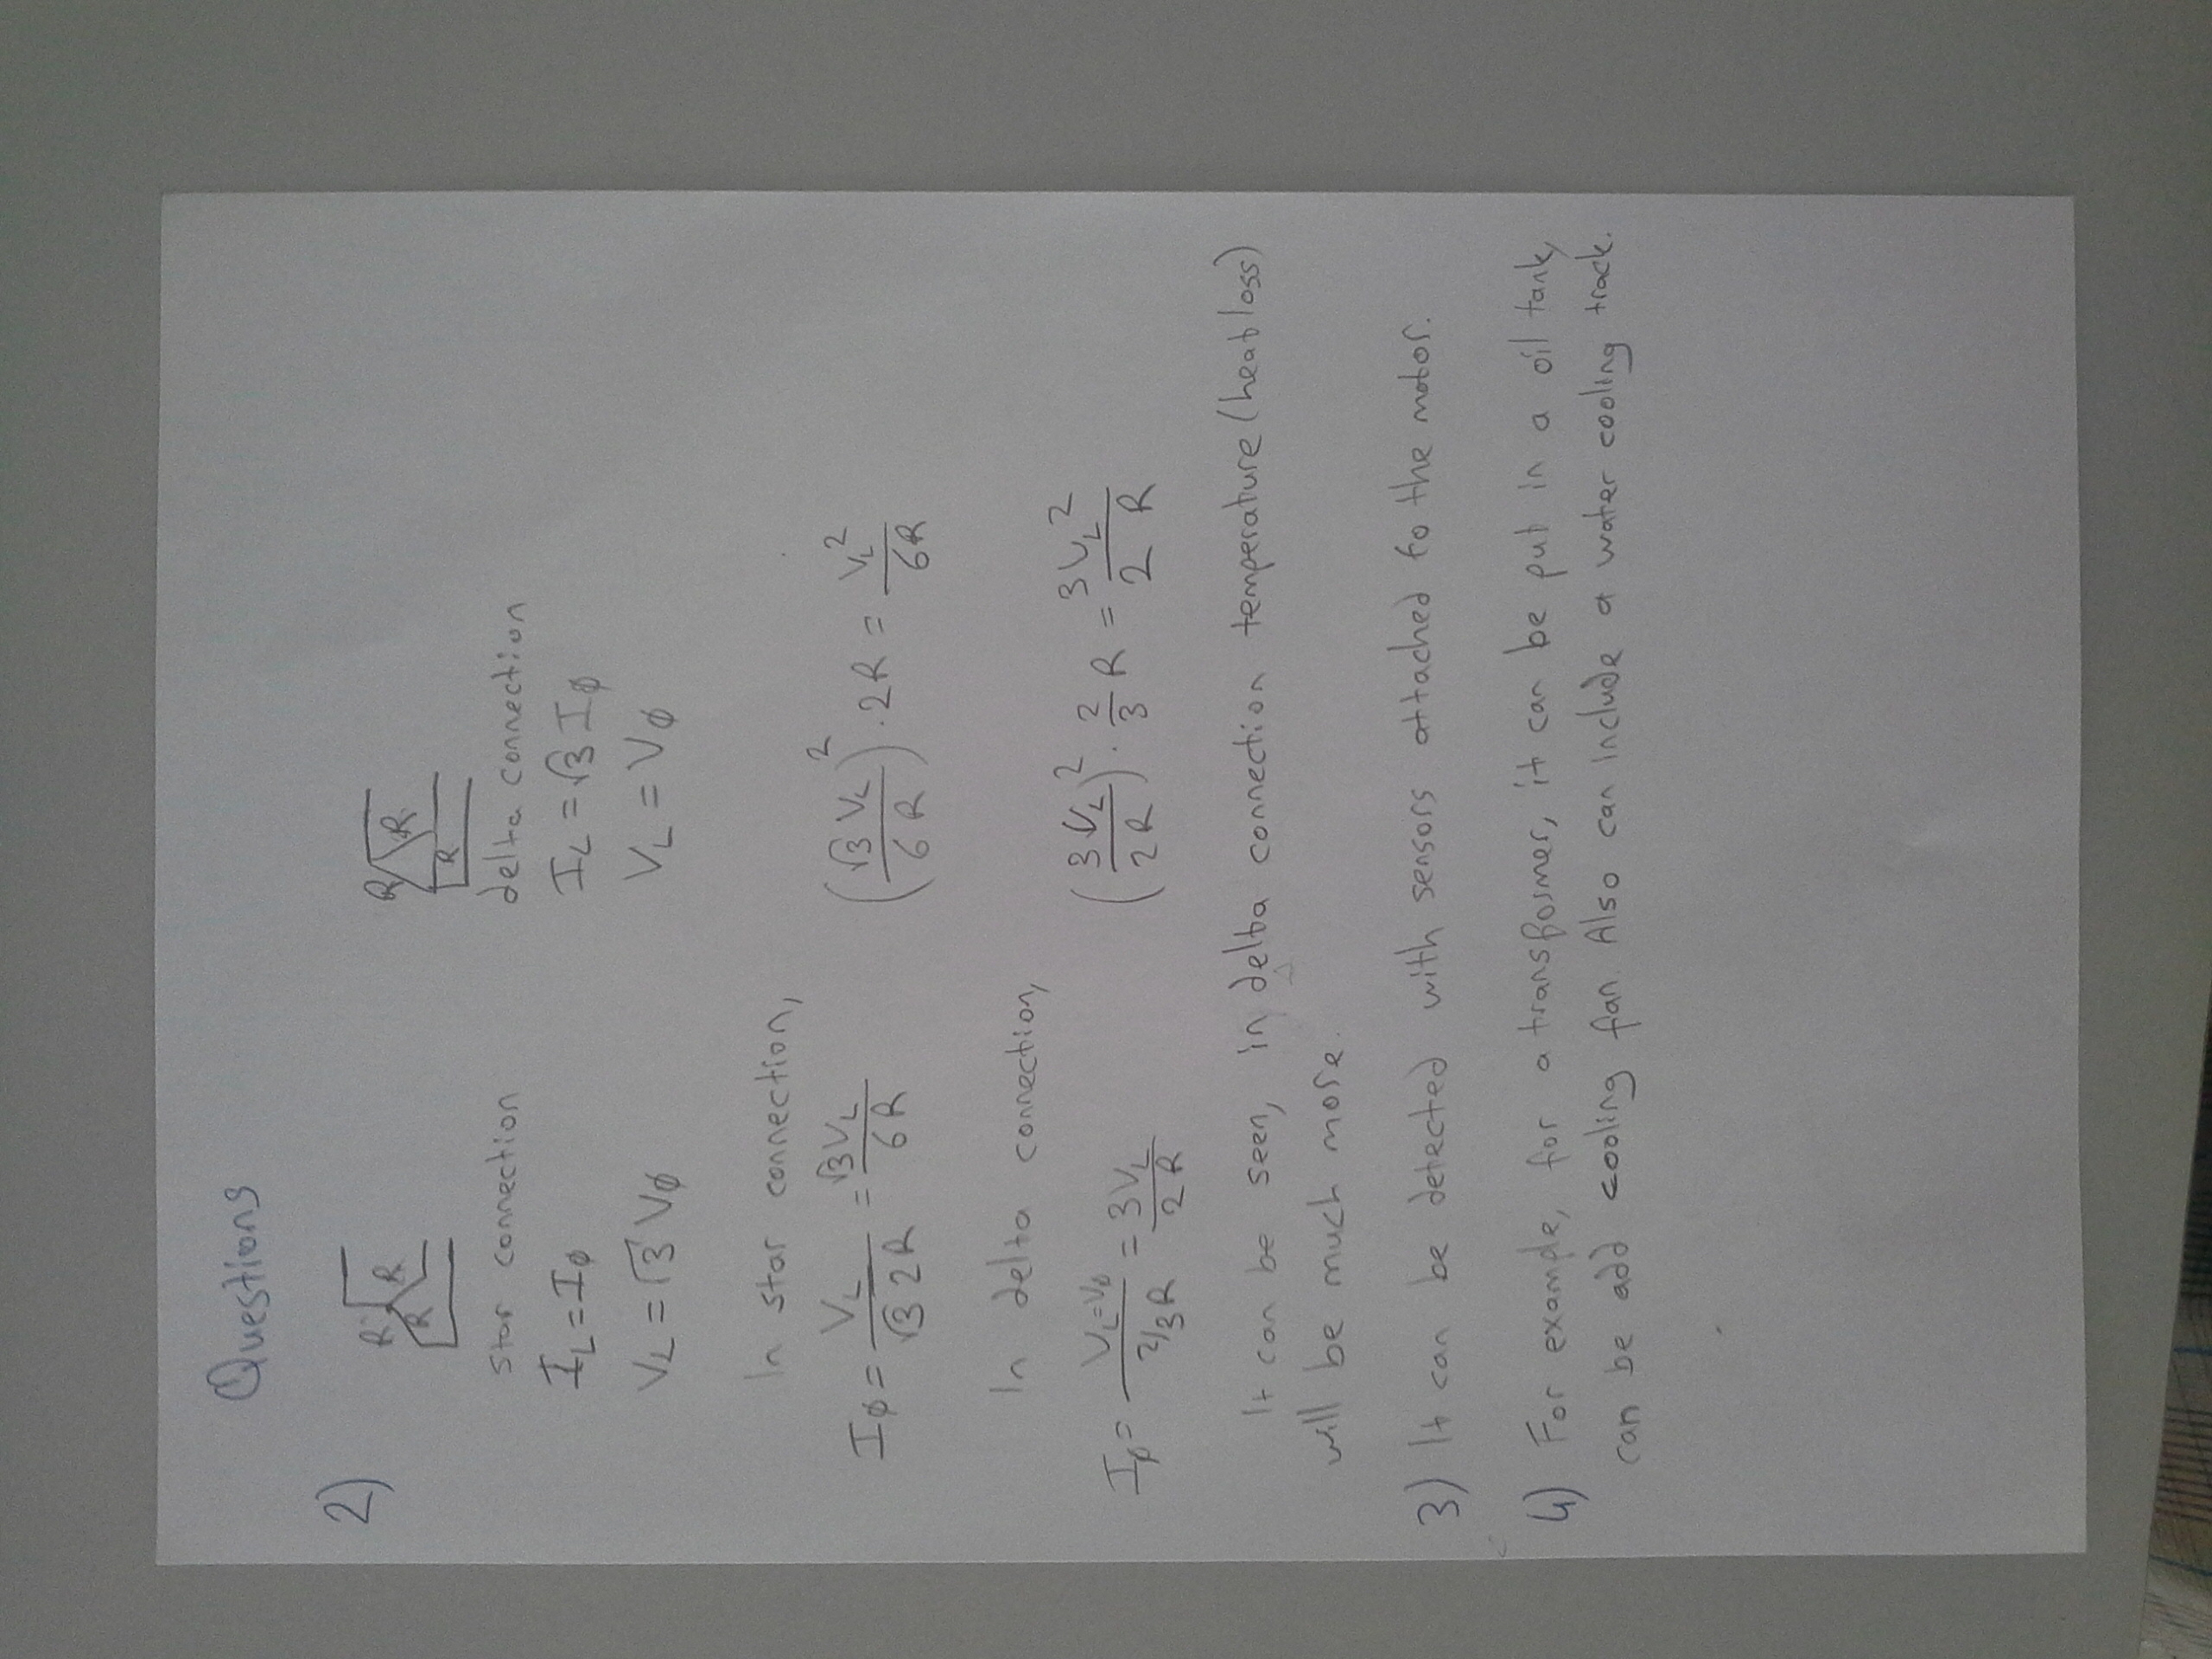 Questions
2)
R R R
R R R
star connection
delta connection
I_L = I_ø
I_L = √3 I_ø
V_L = √3 V_ø
V_L = V_ø
In star connection,
I_ø = V_L / (√3 2R) = √3 V_L / 6R
(√3 V_L / 6R)² . 2R = V_L² / 6R
In delta connection,
I_ø = V_L=V_ø / (2/3 R) = 3V_L / 2R
(3V_L / 2R)² . 2/3 R = 3V_L² / 2 R
It can be seen, in delta connection temperature (heat loss)
will be much more.
3) It can be detected with sensors attached to the motor.
4) For example, for a transformer, it can be put in a oil tank,
can be add cooling fan. Also can include a water cooling track.